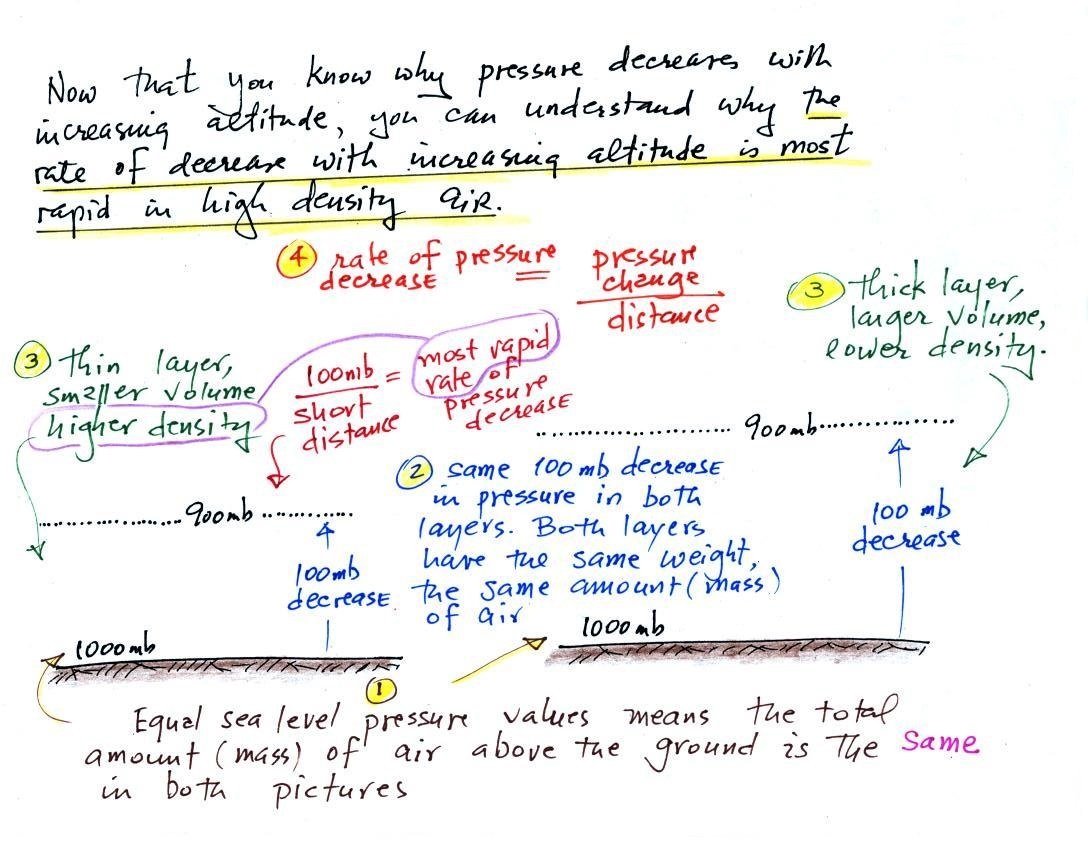 Now that you know why pressure decreases with
increasing altitude, you can understand why the
rate of decrease with increasing altitude is most
rapid in high density air.
④ rate of pressure = pressure change / distance
decrease
③ thick layer,
larger volume,
lower density.
③ thin layer,
smaller volume
higher density
100mb / short distance = most rapid
rate of
pressure
decrease
900mb
② same 100 mb decrease
in pressure in both
layers. Both layers
have the same weight,
the same amount (mass)
of air
900mb
100mb
decrease
100 mb
decrease
1000mb
1000mb
①
Equal sea level pressure values means the total
amount (mass) of air above the ground is the same
in both pictures